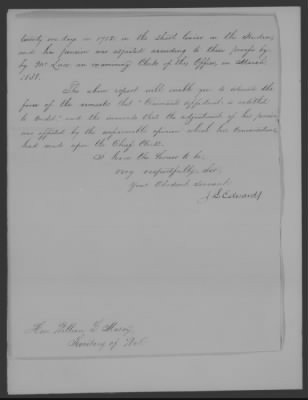 twenty one days in 1782, in the short tours in the
and his pension was adjusted according to these proofs by
by Mr. Luce, an examining Clerk of this Office, in March
1831.
The above report will enable you to estimate the
force of the remarks that
to credit," and the remarks that the adjustment of his pension
was affected by the unfavorable opinion which his
had made upon the Chief Clerk.
I have the honor to be,
very respectfully, Sir,
Your Obedient Servant
J. L. Edwards
Hon. William L. Marcy
Secretary of War